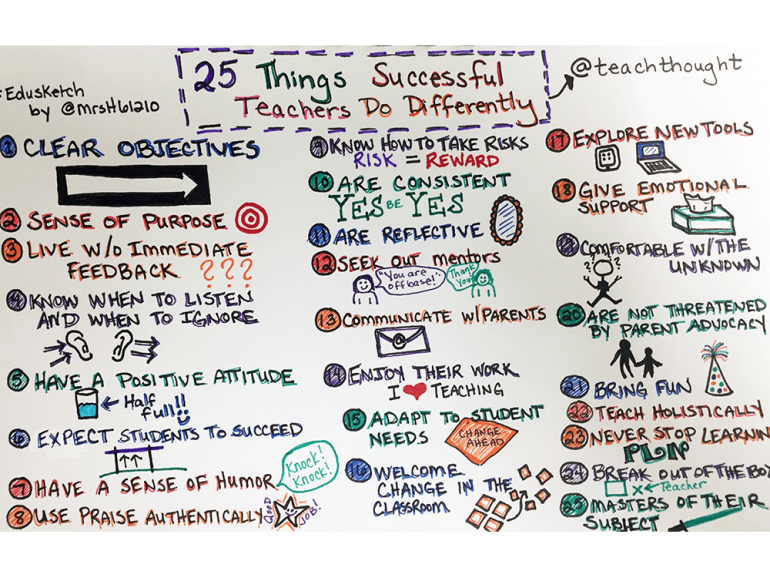 25 Things Successful
Teachers Do Differently
@teachthought
Edusketch
by @mrsH61210
1 CLEAR OBJECTIVES
2 SENSE OF PURPOSE
3 LIVE W/O IMMEDIATE
FEEDBACK ???
4 KNOW WHEN TO LISTEN
AND WHEN TO IGNORE
5 HAVE A POSITIVE ATTITUDE
Half
full!!
6 EXPECT STUDENTS TO SUCCEED
7 HAVE A SENSE OF HUMOR
Knock!
Knock!
8 USE PRAISE AUTHENTICALLY
GOOD
JOB!
9 KNOW HOW TO TAKE RISKS
RISK = REWARD
10 ARE CONSISTENT
YES BE YES
11 ARE REFLECTIVE
12 SEEK OUT mentors
"You are
off base!"
Thank
You!
13 COMMUNICATE W/PARENTS
14 ENJOY THEIR WORK
I ❤ TEACHING
15 ADAPT TO STUDENT
NEEDS
CHANGE
AHEAD
16 WELCOME
CHANGE IN THE
CLASSROOM
17 EXPLORE NEW TOOLS
18 GIVE EMOTIONAL
SUPPORT
19 COMFORTABLE W/THE
UNKNOWN
??
20 ARE NOT THREATENED
BY PARENT ADVOCACY
21 BRING FUN
22 TEACH HOLISTICALLY
23 NEVER STOP LEARNIN
PLN
24 BREAK OUT OF THE BO
x Teacher
25 MASTERS OF THEIR
SUBJECT